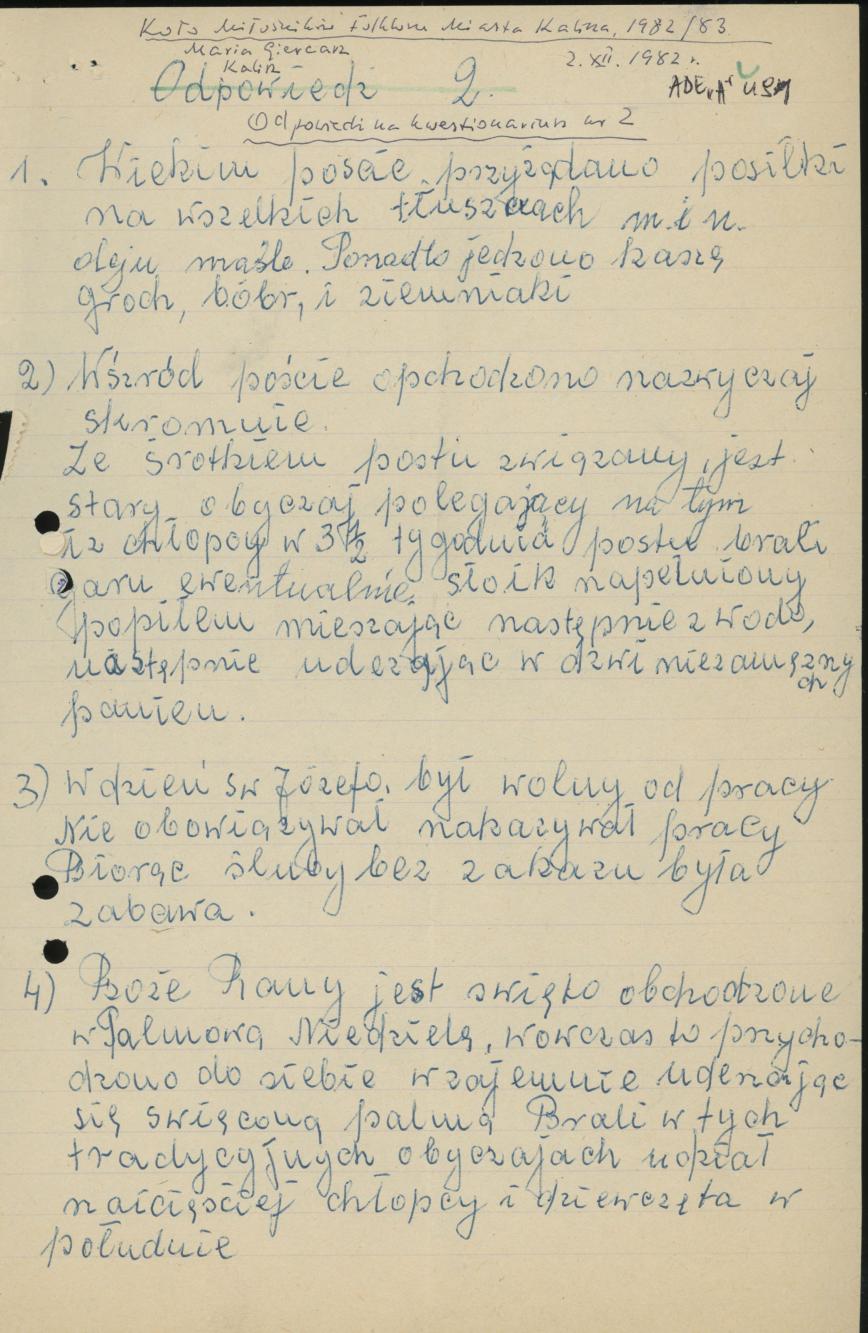 Koło Miłośników Folkloru Miasta Kalisza, 1982/83
Maria Giercarz
Kalisz
2. XII. 1982 r.
Odpowiedź 2.
ADE "A"
Odpowiedzi na kwestionariusz nr 2
1. Wiekim poscie przyżądano posiłki
na wszelkich tłuszczach m.i n.
oleju maśle. Ponadto jedzono kaszę
groch, bóbr, i ziemniaki
2) Wśzród poście opchodzono nazwyczaj
skromnie.
Ze śrotkiem postu związany, jest
stary obyczaj polegający na tym
iż chłopcy w 3 1/2 tygodnia postu brali
garu ewentualnie słoik napełniony
popiłem mieszając następnie z wodą,
następnie udezając w dzwi niezamężny
ch
panien.
3) W dzień sw Józefa, był wolny od pracy
Nie obowiązywał nakazywał pracy
Biorąc śluby bez zakazu była
zabawa.
4) Boże Rany jest swięto obchodzone
w Palmową Niedzielę, wówczas to przycho-
dzono do siebie wzajemnie uderzając
się swięconą palmą Brali w tych
tradycyjnych obyczajach udział
naicięściej chłopcy i dziewczęta w
południe